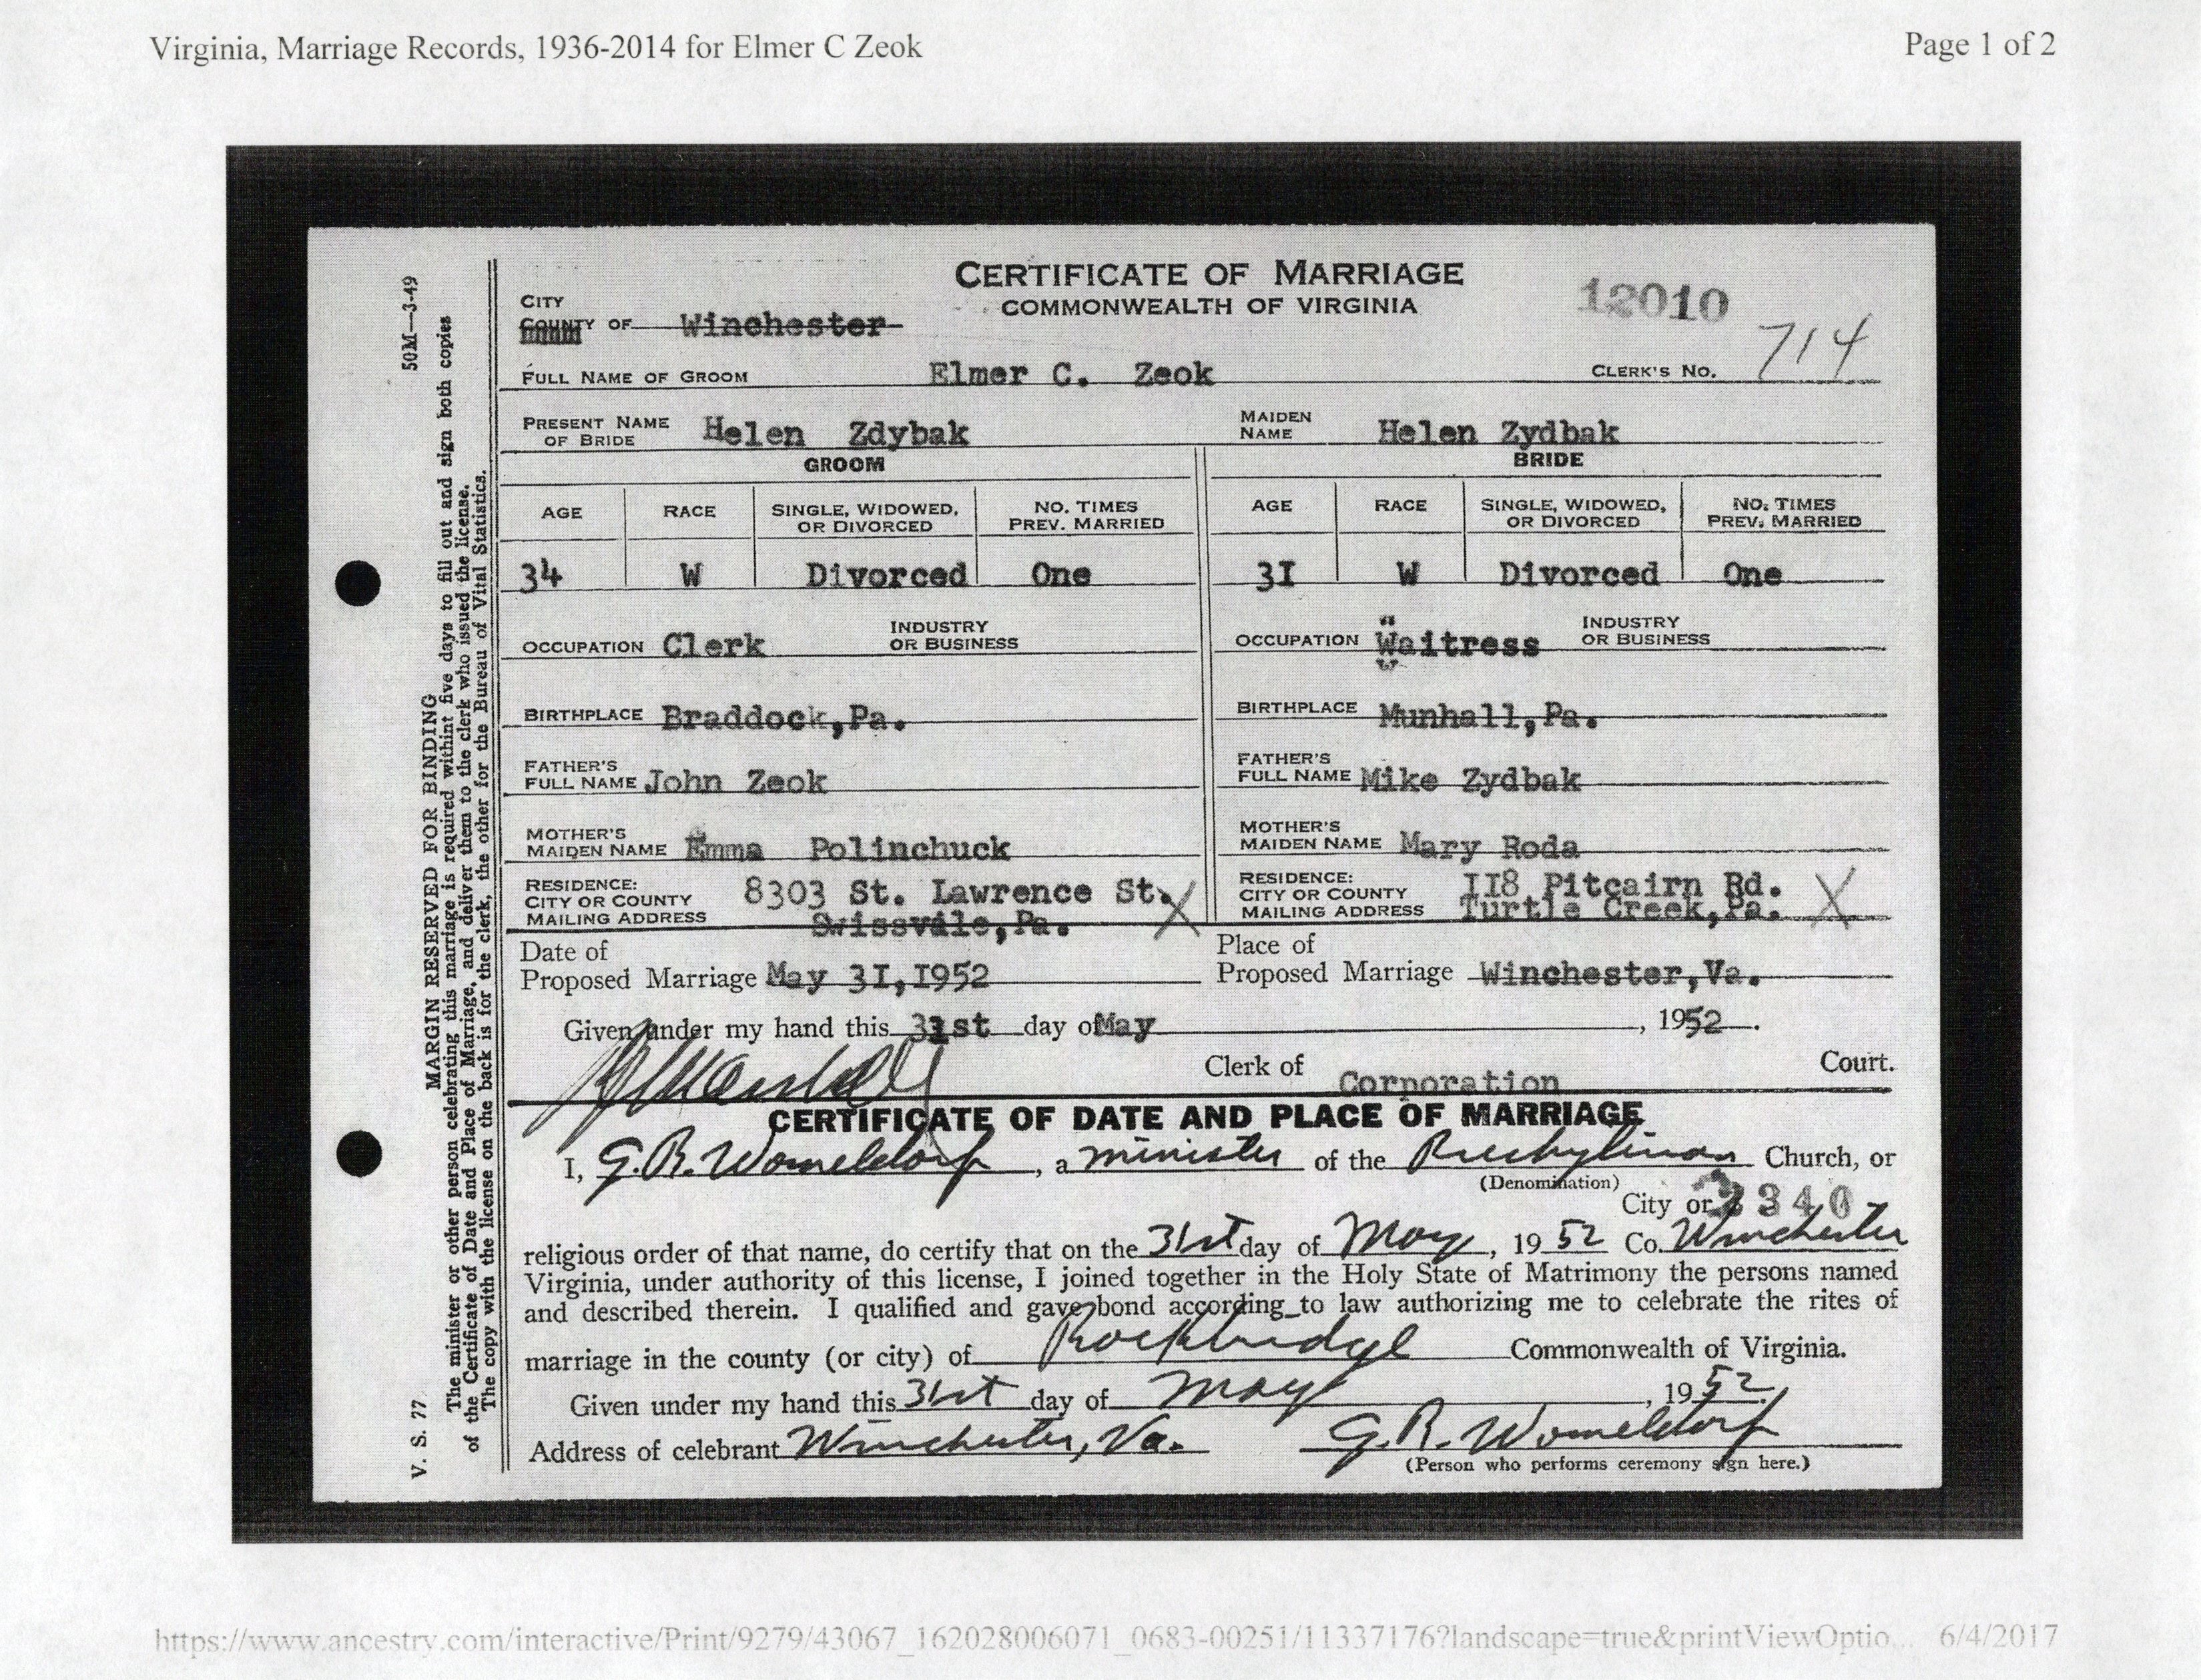 Virginia, Marriage Records, 1936-2014 for Elmer C Zeok
Page 1 of 2
50M—3-49
MARGIN RESERVED FOR BINDING
The minister or other person celebrating this marriage is required withint five days to fill out and sign both copies
of the Certificate of Date and Place of Marriage, and deliver them to the clerk who issued the license.
The copy with the license on the back is for the clerk, the other for the Bureau of Vital Statistics.
V. S. 77
CERTIFICATE OF MARRIAGE
COMMONWEALTH OF VIRGINIA
12010
CITY
COUNTY OF Winchester
FULL NAME OF GROOM Elmer C. Zeok CLERK'S No. 714
PRESENT NAME OF BRIDE Helen Zdybak MAIDEN NAME Helen Zydbak
GROOM BRIDE
AGE RACE SINGLE, WIDOWED, OR DIVORCED NO. TIMES PREV. MARRIED AGE RACE SINGLE, WIDOWED, OR DIVORCED NO. TIMES PREV. MARRIED
34 W Divorced One 3I W Divorced One
OCCUPATION Clerk INDUSTRY OR BUSINESS OCCUPATION Waitress INDUSTRY OR BUSINESS
BIRTHPLACE Braddock,Pa. BIRTHPLACE Munhall,Pa.
FATHER'S FULL NAME John Zeok FATHER'S FULL NAME Mike Zydbak
MOTHER'S MAIDEN NAME Emma Polinchuck MOTHER'S MAIDEN NAME Mary Roda
RESIDENCE: CITY OR COUNTY MAILING ADDRESS 8303 St. Lawrence St. Swissvale,Pa. X RESIDENCE: CITY OR COUNTY MAILING ADDRESS II8 Pitcairn Rd. Turtle Creek,Pa. X
Date of Proposed Marriage May 3I,I952 Place of Proposed Marriage Winchester,Va.
Given under my hand this 31st day of May, 1952.
Clerk of Corporation Court.
CERTIFICATE OF DATE AND PLACE OF MARRIAGE
I, G.R. Womeldorf, a minister of the Presbyterian Church, or
(Denomination)
City or 3340
religious order of that name, do certify that on the 31st day of May, 1952 Co. Winchester
Virginia, under authority of this license, I joined together in the Holy State of Matrimony the persons named
and described therein. I qualified and gave bond according to law authorizing me to celebrate the rites of
marriage in the county (or city) of Rockbridge Commonwealth of Virginia.
Given under my hand this 31st day of May, 1952.
Address of celebrant Winchester, Va. G.R. Womeldorf
(Person who performs ceremony sign here.)
https://www.ancestry.com/interactive/Print/9279/43067_162028006071_0683-00251/11337176?landscape=true&printViewOptio... 6/4/2017